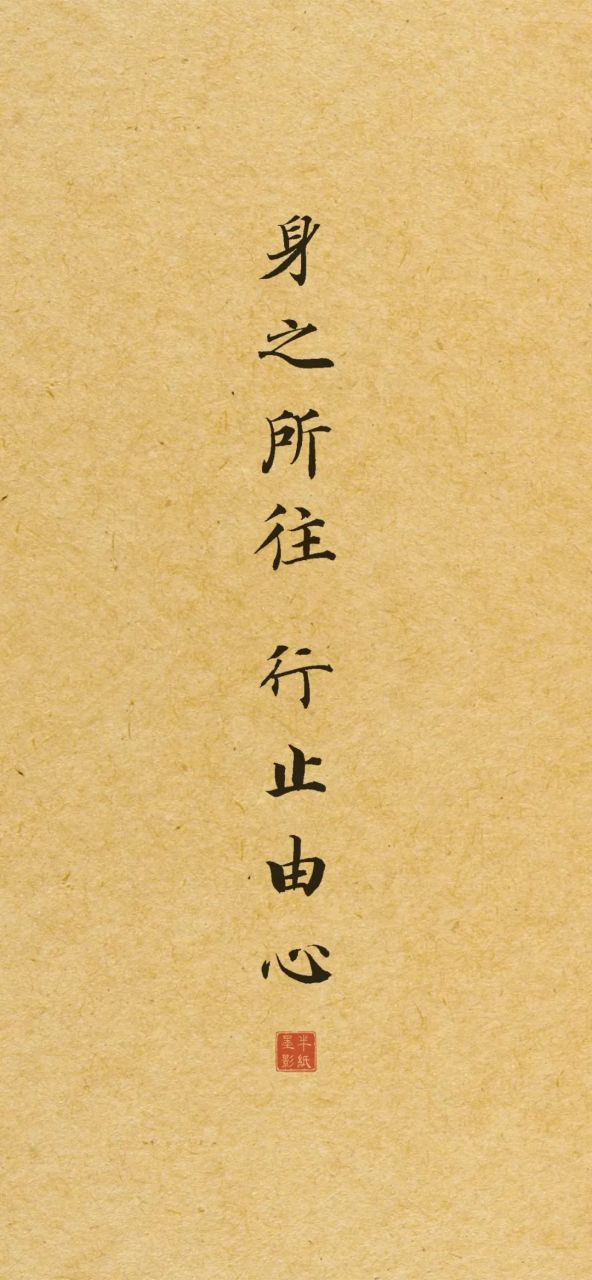 身之所往 行止由心
半紙
墨影